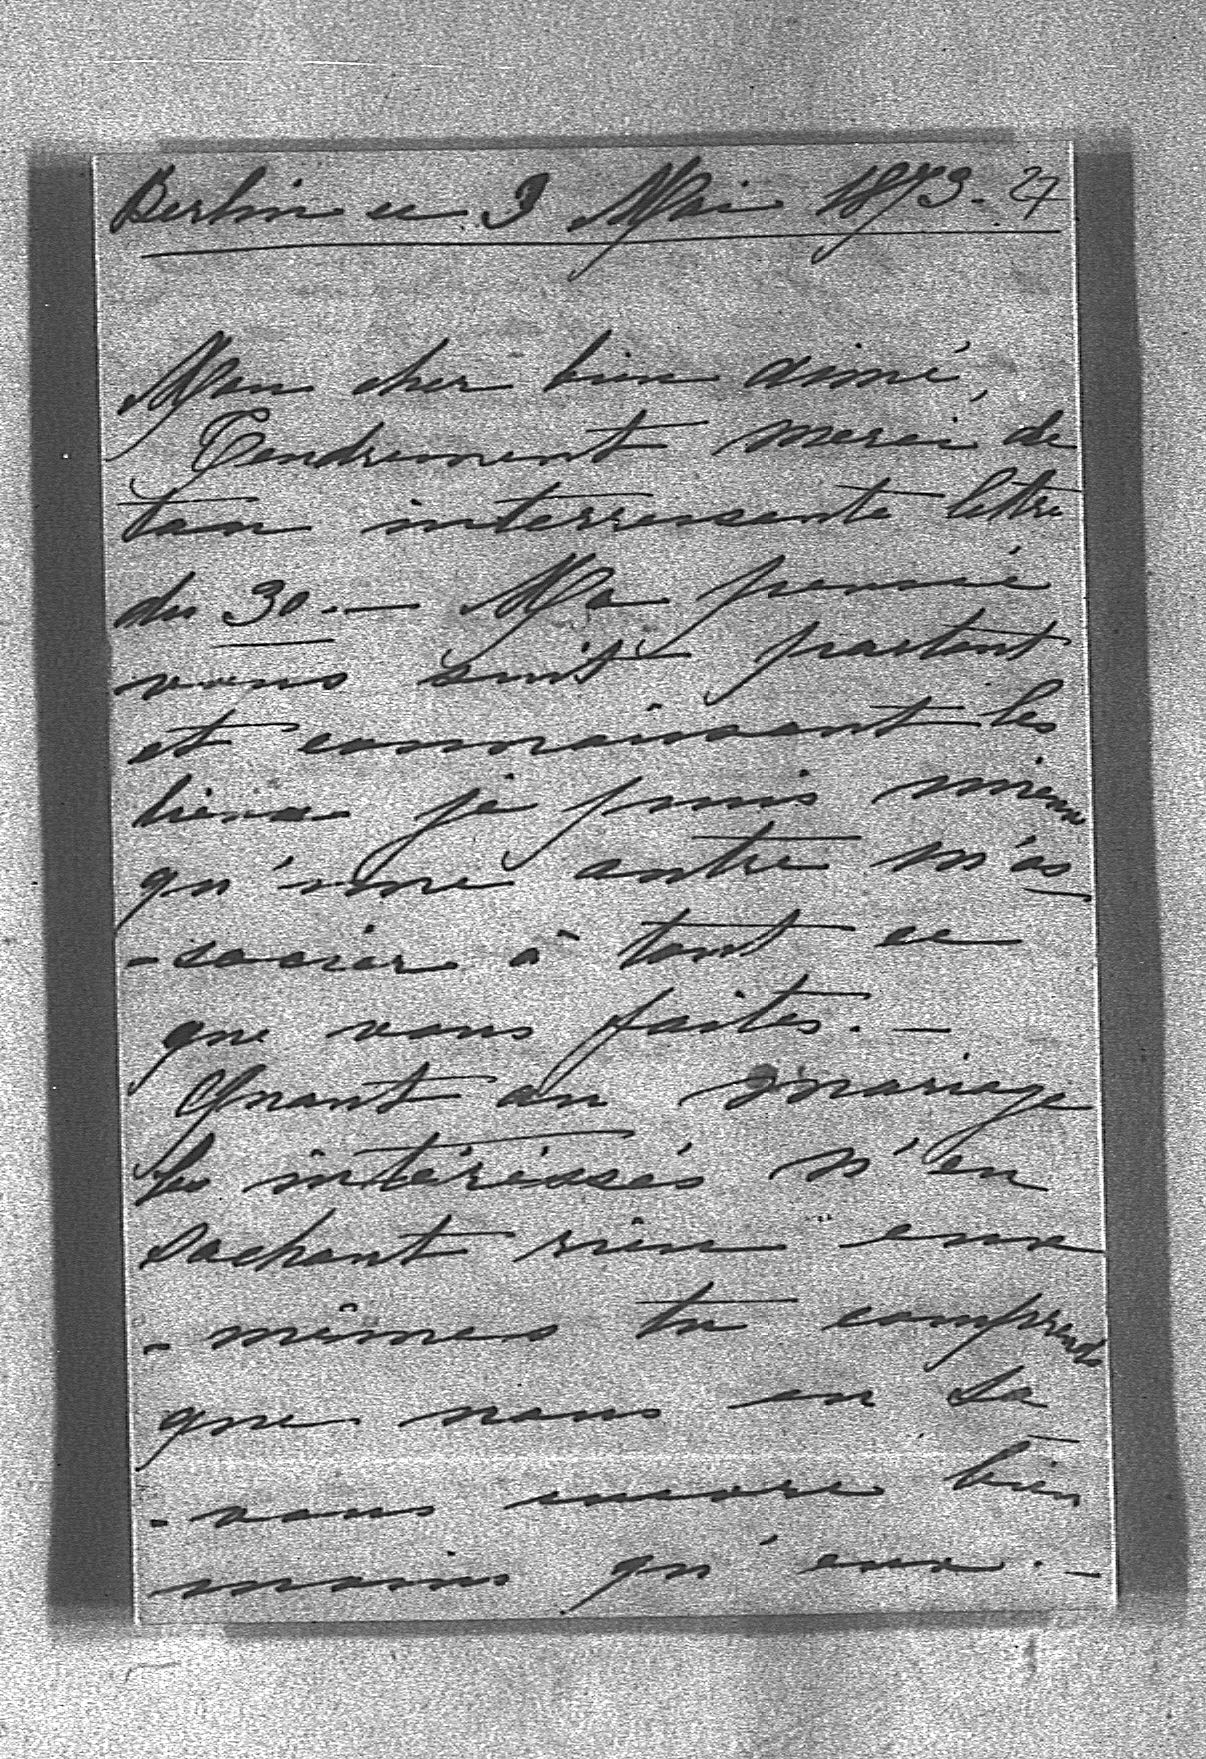 Berlin ce 3 Mai 1873. 27
Mon cher bien aimé,
Tendrement merci de
ton interressente lettre
du 30. — Ma pensée
vous suit partout
et connaissant les
lieux je puis mieux
qu'une autre m'as-
-socier à tout ce
que vous faites. —
Quant au mariage
les intéréssés n'en
sachant rien eux
-mêmes tu comprends
que nous en sa-
-vons encore bien
moins qu'eux. —